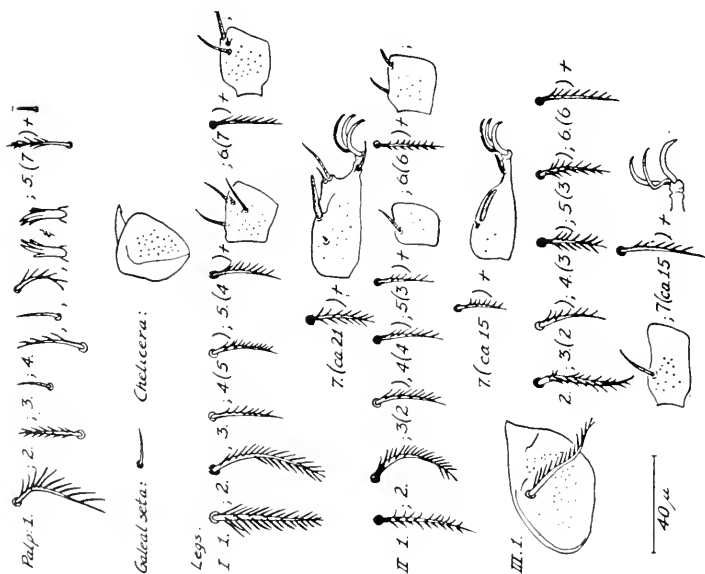 Palp: 1. ; 2. ; 3. ; 4. , , , & ; 5.(7 ) +
Galeal seta: Chelicera:
Legs.
I 1. ; 2. 3. ; 4(5 ) ; 5.(4 ) + ; 6.(7 ) + ;
7.(ca.21 ) +
II 1. ; 2. ; 3(2 ), 4(4 ) ; 5(3 ) + ; 6.(6 ) + ;
7.(ca 15 ) +
III.1. 2. ; 3.(2 ), 4.(3 ), 5(3 ), 6.(6 ) +
; 7(ca.15 ) +
40 µ